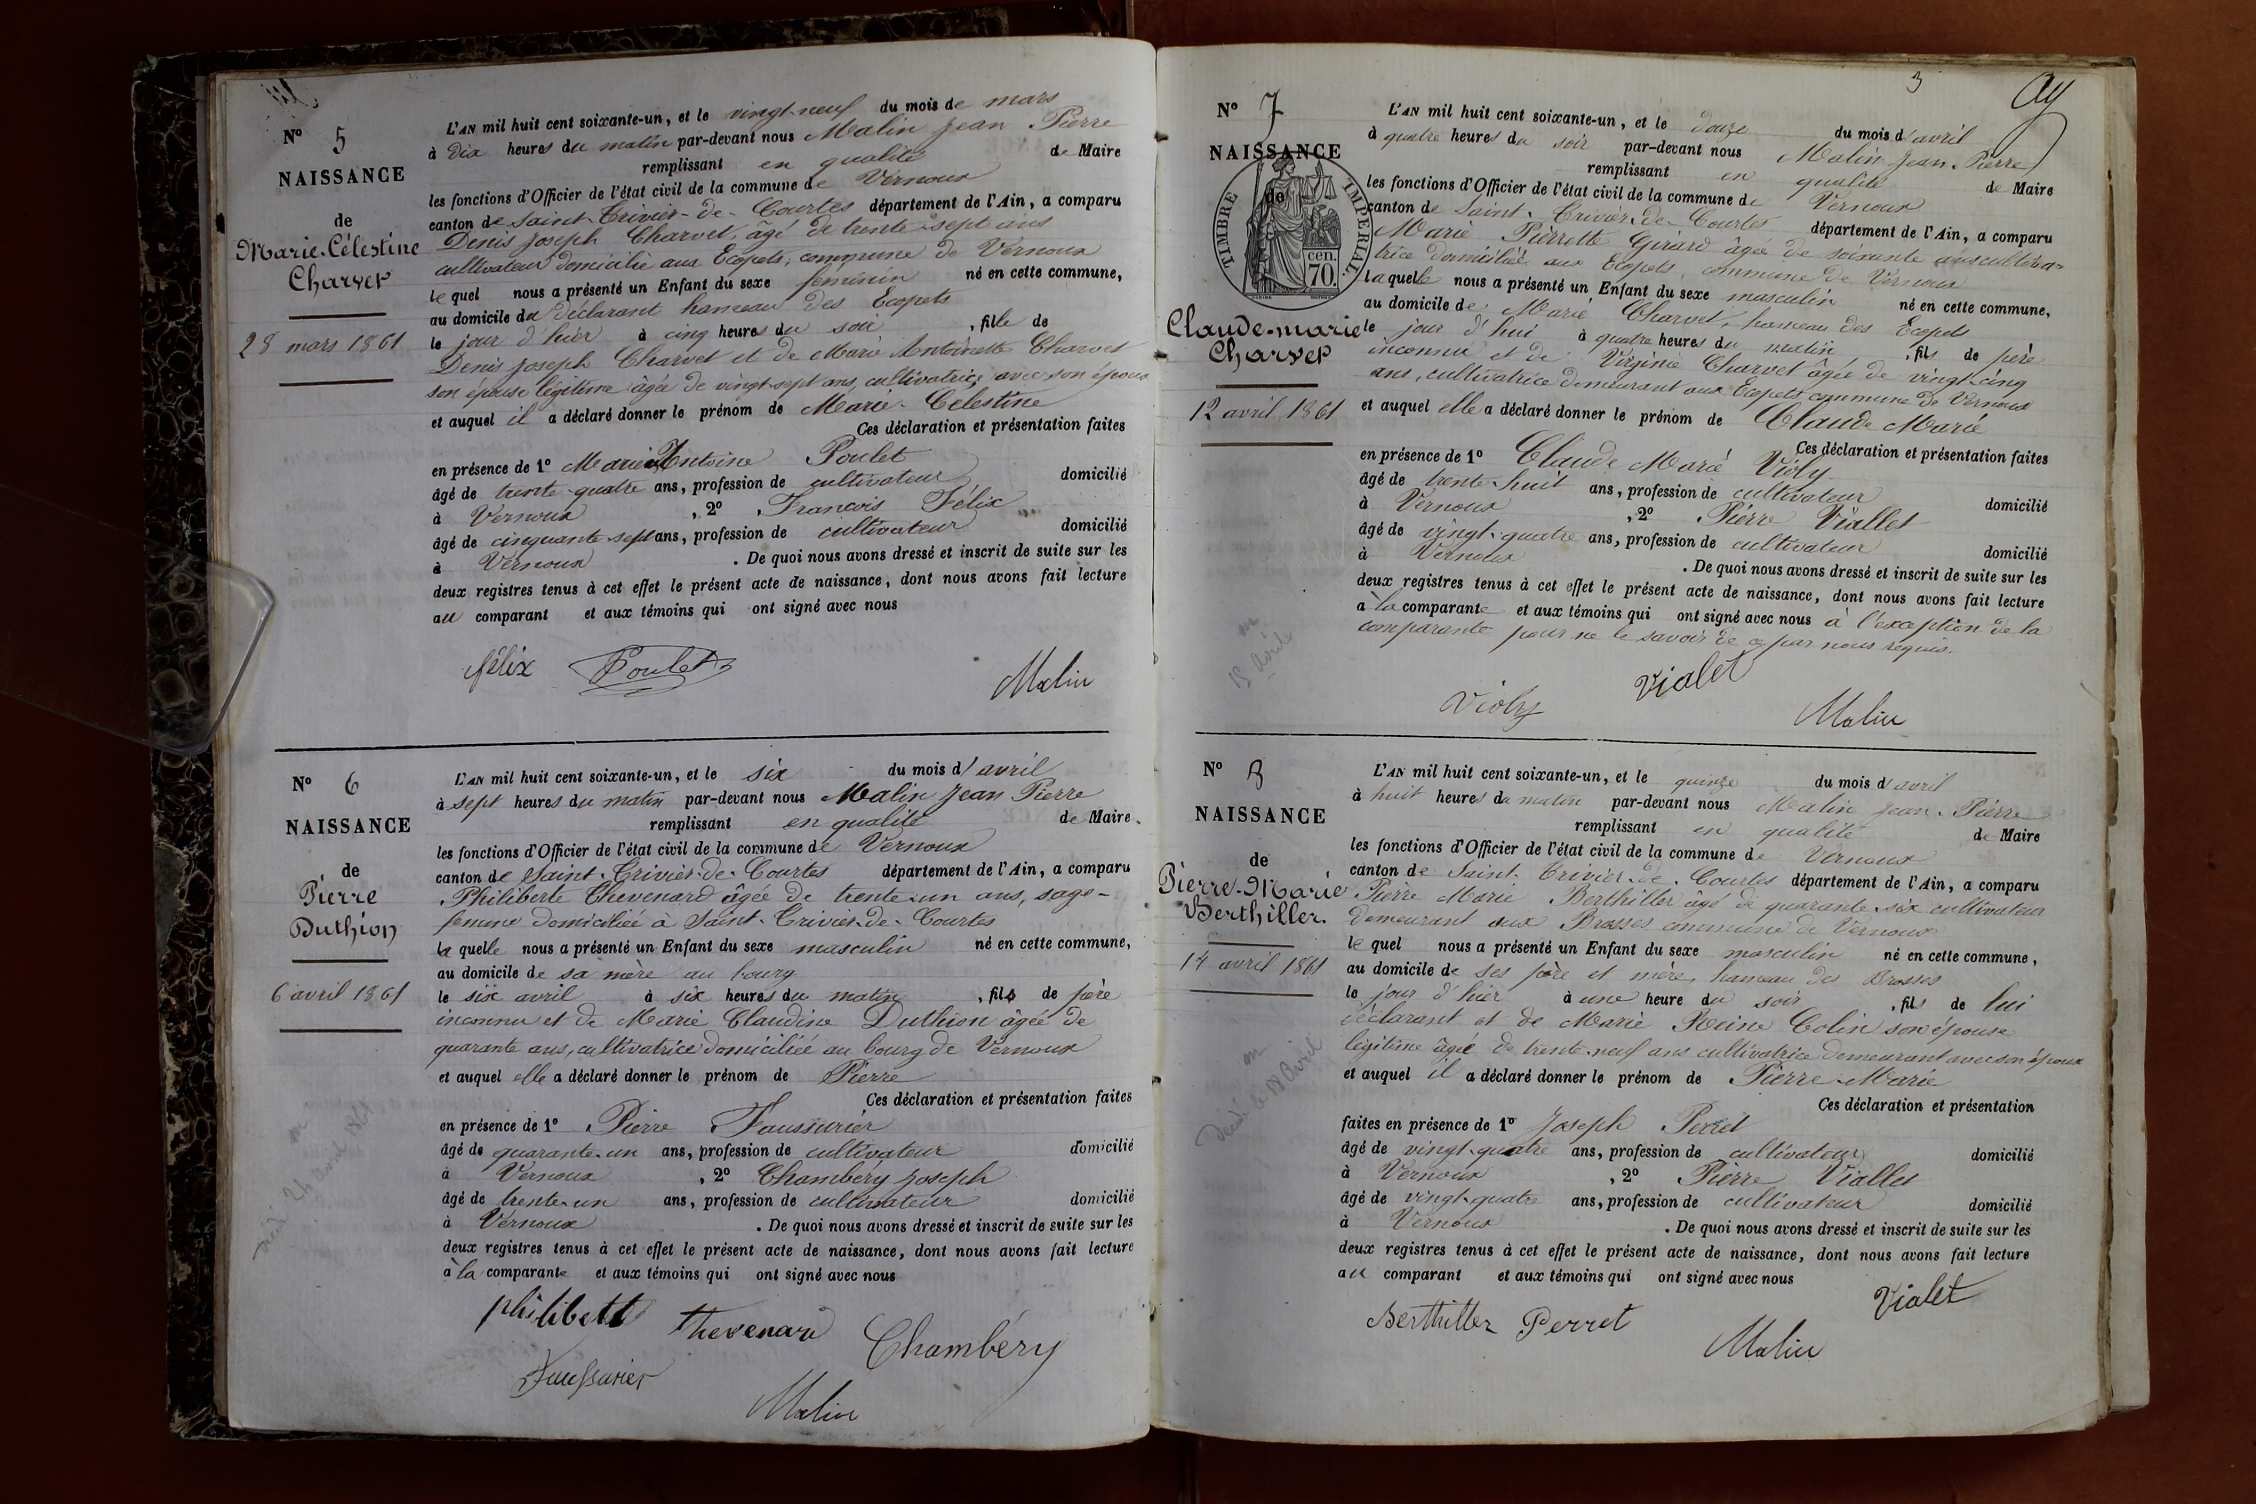 Nº 5
NAISSANCE
de
Marie-Célestine
Charvet
28 mars 1861
L'AN mil huit cent soixante-un, et le vingt-neuf du mois de mars
à dix heures du matin par-devant nous Malin Jean Pierre
remplissant en qualité de Maire
les fonctions d'Officier de l'état civil de la commune de Vernoux
canton de Saint-Trivier-de-Courtes département de l'Ain, a comparu
Denis Joseph Charvet, âgé de trente-sept ans
cultivateur domicilié aux Ecopets, commune de Vernoux
lequel nous a présenté un Enfant du sexe féminin né en cette commune,
au domicile du déclarant hameau des Ecopets
le jour d'hier à cinq heures du soir, fille de
Denis Joseph Charvet et de Marie Antoinette Charvet
son épouse légitime âgée de vingt-sept ans, cultivatrice avec son époux
et auquel il a déclaré donner le prénom de Marie-Célestine
Ces déclaration et présentation faites
en présence de 1º Marie Antoine Poulet
âgé de trente-quatre ans, profession de cultivateur domicilié
à Vernoux, 2º François Félix
âgé de cinquante-sept ans, profession de cultivateur domicilié
à Vernoux. De quoi nous avons dressé et inscrit de suite sur les
deux registres tenus à cet effet le présent acte de naissance, dont nous avons fait lecture
au comparant et aux témoins qui ont signé avec nous
félix Poulet Malin
Nº 6
NAISSANCE
de
Pierre
Duthion
6 avril 1861
L'AN mil huit cent soixante-un, et le six du mois d'avril
à sept heures du matin par-devant nous Malin Jean Pierre
remplissant en qualité de Maire.
les fonctions d'Officier de l'état civil de la commune de Vernoux
canton de Saint-Trivier-de-Courtes département de l'Ain, a comparu
Philiberte Thevenard âgée de trente-un ans, sage-
femme domiciliée à Saint-Trivier-de-Courtes
laquelle nous a présenté un Enfant du sexe masculin né en cette commune,
au domicile de sa mère au bourg
le six avril à six heures du matin, fils de père
inconnu et de Marie Claudine Duthion âgée de
quarante ans, cultivatrice domiciliée au bourg de Vernoux
et auquel elle a déclaré donner le prénom de Pierre
Ces déclaration et présentation faites
en présence de 1º Pierre Faussurier
âgé de quarante-un ans, profession de cultivateur domicilié
à Vernoux, 2º Chambéry Joseph
âgé de trente-un ans, profession de cultivateur domicilié
à Vernoux. De quoi nous avons dressé et inscrit de suite sur les
deux registres tenus à cet effet le présent acte de naissance, dont nous avons fait lecture
à la comparante et aux témoins qui ont signé avec nous
philibette thevenard Chambéry
Malin
3
Nº 7
NAISSANCE
de
TIMBRE IMPERIAL.
cen.
70.
Claude-marie
Charvet
12 avril 1861
L'AN mil huit cent soixante-un, et le douze du mois d'avril
à quatre heures du soir par-devant nous Malin Jean-Pierre
remplissant en qualité de Maire
les fonctions d'Officier de l'état civil de la commune de Vernoux
canton de Saint-Trivier-de-Courtes département de l'Ain, a comparu
Marie Pierrette Girard âgée de soixante ans cultiva-
trice domiciliée aux Ecopets, commune de Vernoux
laquelle nous a présenté un Enfant du sexe masculin né en cette commune,
au domicile de Marie Charvet, hameau des Ecopets
le jour d'hui à quatre heures du matin, fils de père
inconnu et de Virginie Charvet âgée de vingt-cinq
ans, cultivatrice demeurant aux Ecopets commune de Vernoux
et auquel elle a déclaré donner le prénom de Claude Marie
Ces déclaration et présentation faites
en présence de 1º Claude Marie Violy
âgé de trente-huit ans, profession de cultivateur domicilié
à Vernoux, 2º Pierre Viallet
âgé de vingt-quatre ans, profession de cultivateur domicilié
à Vernoux. De quoi nous avons dressé et inscrit de suite sur les
deux registres tenus à cet effet le présent acte de naissance, dont nous avons fait lecture
à la comparante et aux témoins qui ont signé avec nous à l'exception de la
comparante pour ne le savoir de ce par nous requis.
Violy Vialet Malin
Nº 8
NAISSANCE
de
Pierre-Marie
Berthiller.
14 avril 1861
L'AN mil huit cent soixante-un, et le quinze du mois d'avril
à huit heures du matin par-devant nous Malin Jean-Pierre
remplissant en qualité de Maire
les fonctions d'Officier de l'état civil de la commune de Vernoux
canton de Saint-Trivier-de-Courtes département de l'Ain, a comparu
Pierre Marie Berthiller âgé de quarante-six cultivateur
demeurant aux Brosses commune de Vernoux
lequel nous a présenté un Enfant du sexe masculin né en cette commune,
au domicile de ses père et mère, hameau des Brosses
le jour d'hier à une heure du soir, fils de lui
déclarant et de Marie Reine Colin son épouse
légitime âgée de trente-neuf ans cultivatrice demeurant avec son époux
et auquel il a déclaré donner le prénom de Pierre-Marie
Ces déclaration et présentation
faites en présence de 1º Joseph Perret
âgé de vingt-quatre ans, profession de cultivateur domicilié
à Vernoux, 2º Pierre Viallet
âgé de vingt-quatre ans, profession de cultivateur domicilié
à Vernoux. De quoi nous avons dressé et inscrit de suite sur les
deux registres tenus à cet effet le présent acte de naissance, dont nous avons fait lecture
au comparant et aux témoins qui ont signé avec nous
Vialet
Berthiller Perret
Malin